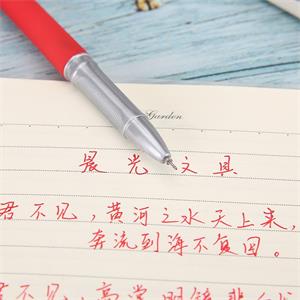 Garden
晨光 文具
君不见，黄河之水天上来，
奔流到海不复回。
君不见，高堂明镜悲